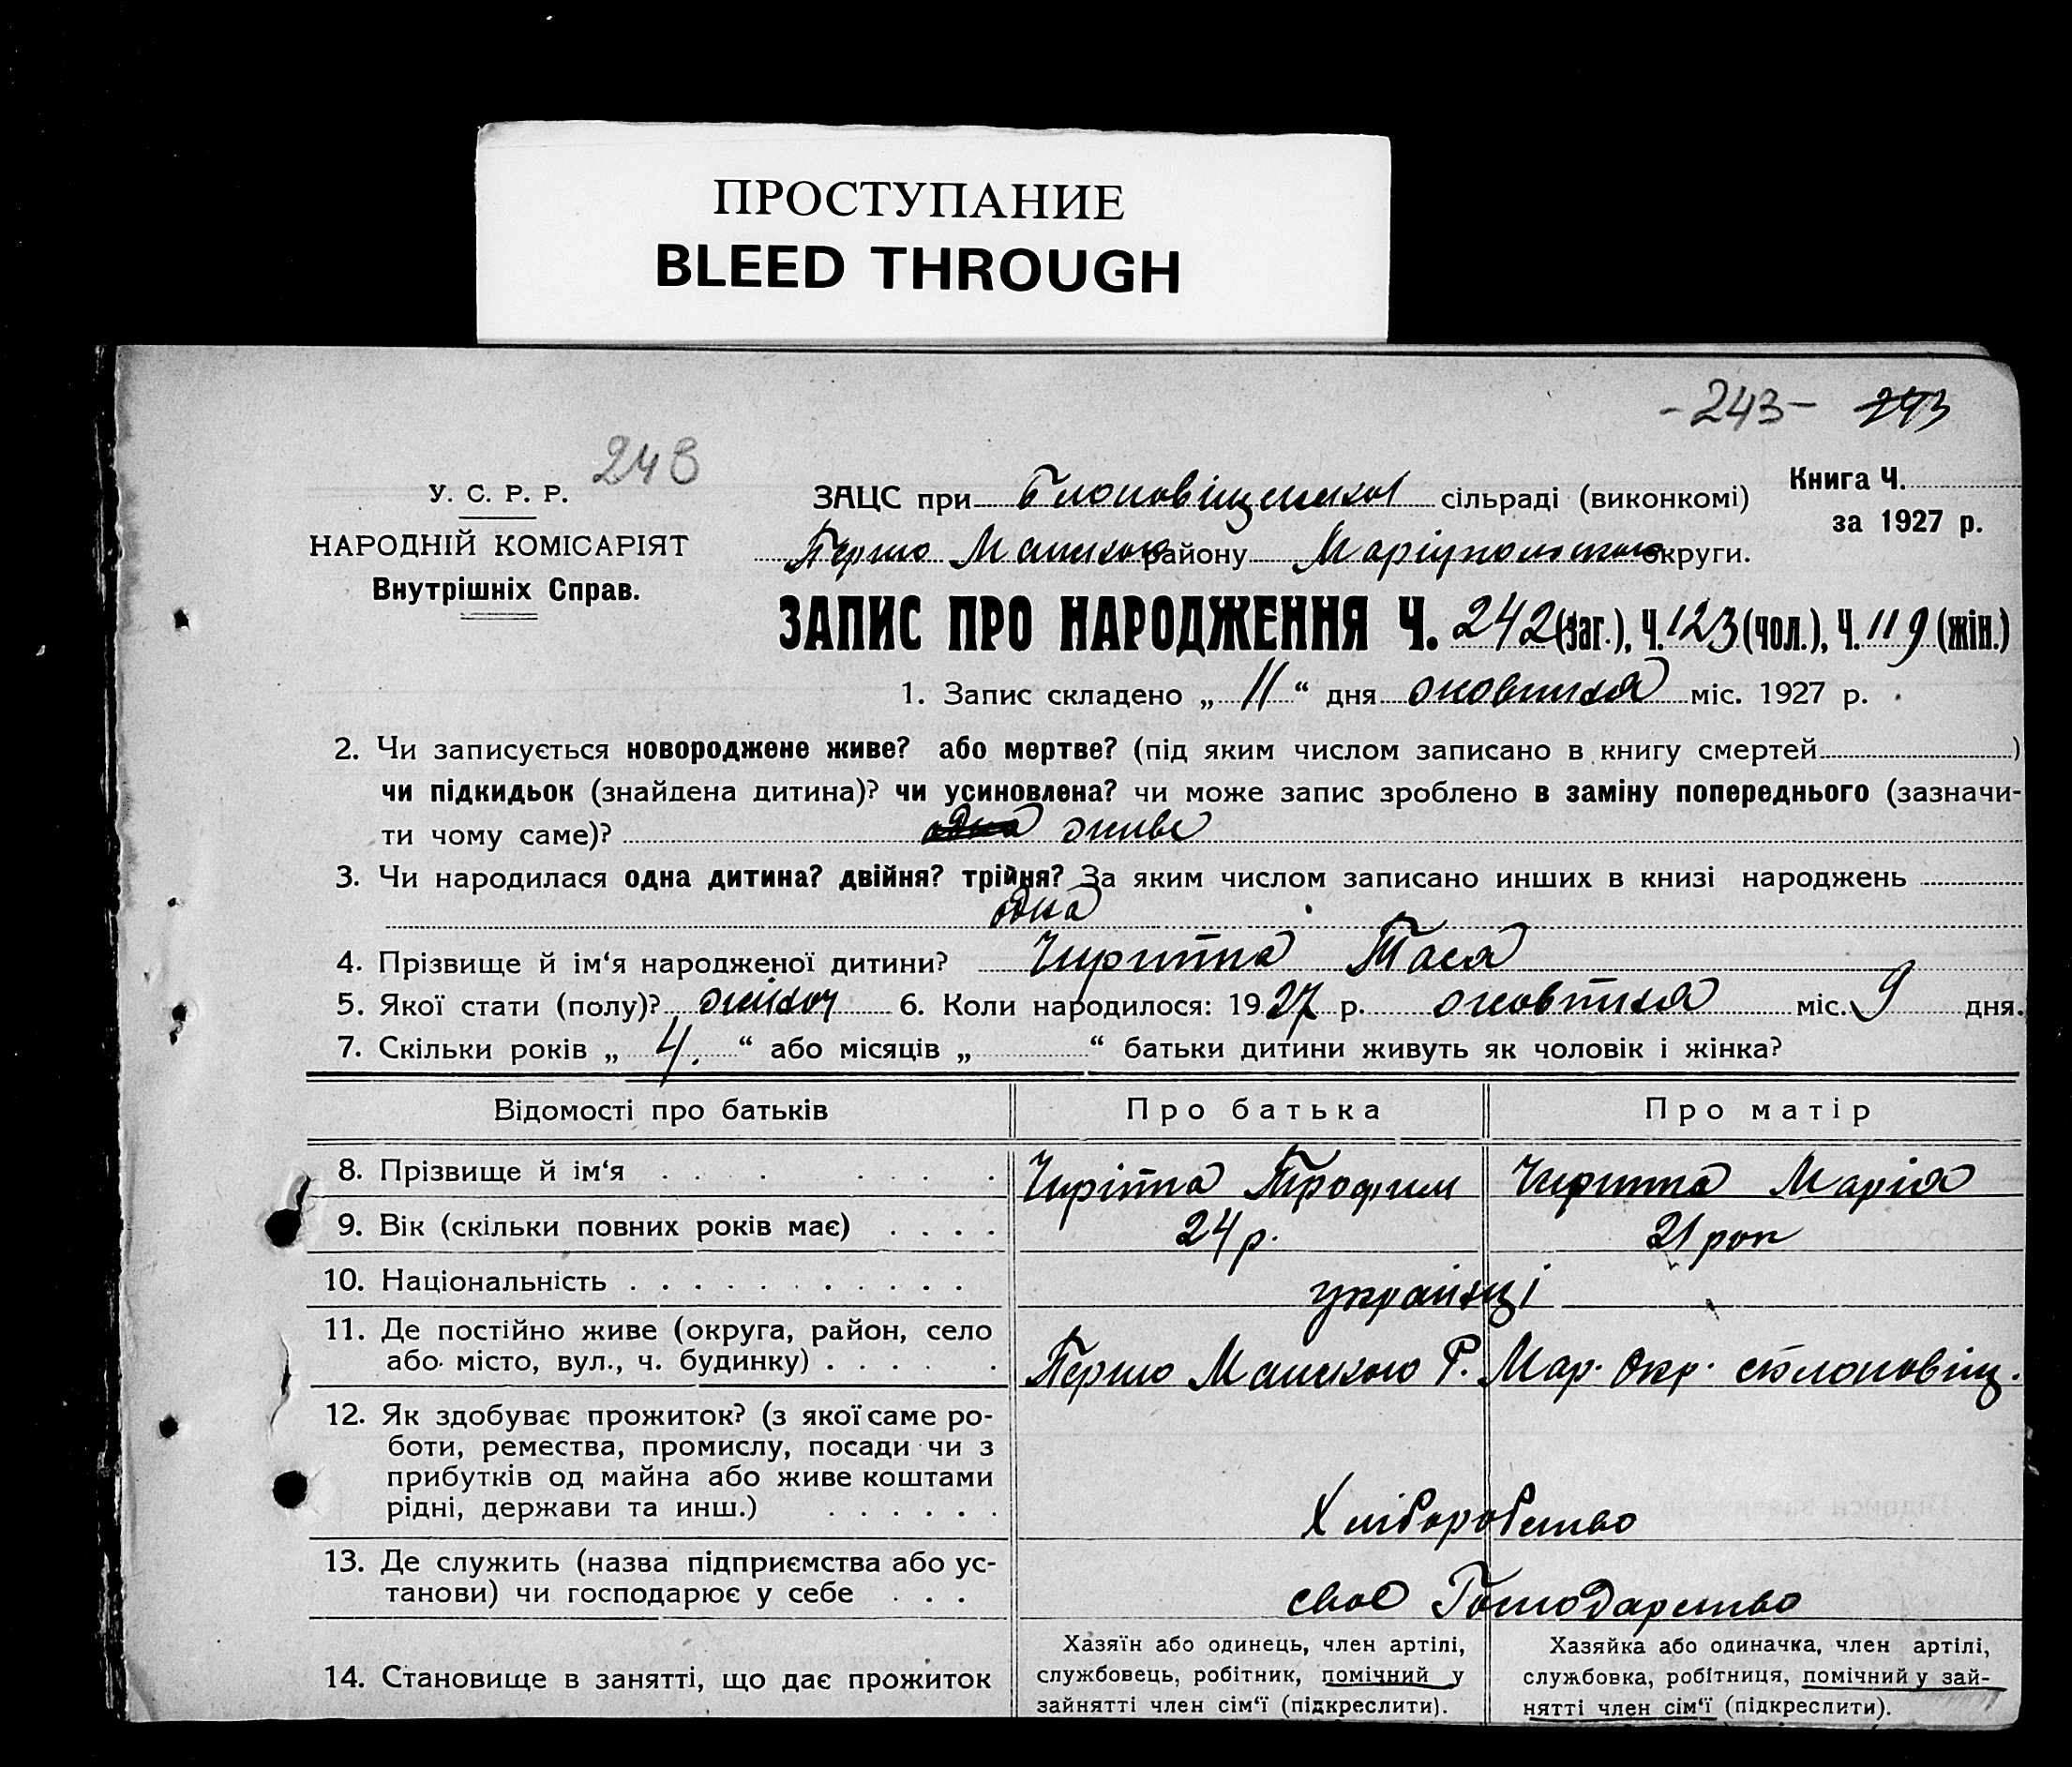 ПРОСТУПАНИЕ
BLEED THROUGH
-243- 243
248
У. С. Р. Р.
НАРОДНІЙ КОМІСАРІЯТ
Внутрішніх Справ.
Книга Ч.
за 1927 р.
ЗАЦС при сільраді (виконкомі)
Першо Манського району Маріупольською округи.
ЗАПИС ПРО НАРОДЖЕННЯ Ч. 242 (заг.), Ч. 123 (чол.), Ч. 119 (жін.)
1. Запис складено „ 11 “ дня жовтня міс. 1927 р.
2. Чи записується новороджене живе? або мертве? (під яким числом записано в книгу смертей )
чи підкидьок (знайдена дитина)? чи усиновлена? чи може запис зроблено в заміну попереднього (зазначи-
ти чому саме)? одна живе
3. Чи народилася одна дитина? двійня? трійня? За яким числом записано инших в книзі народжень
одна
4. Прізвище й ім‘я народженої дитини? Чирипна Тася
5. Якої стати (полу)? жіноч 6. Коли народилося: 1927 р. жовтня міс. 9 дня.
7. Скільки років „ 4. “ або місяців „ “ батьки дитини живуть як чоловік і жінка?
Відомості про батьків Про батька Про матір
8. Прізвище й ім‘я Трофим Марія
9. Вік (скільки повних років має) 24 р. 21 рок
10. Національність українці
11. Де постійно живе (округа, район, село
або місто, вул., ч. будинку) Першо Р. Мар. Окр.
12. Як здобуває прожиток? (з якої саме ро-
боти, ремества, промислу, посади чи з
прибутків од майна або живе коштами
рідні, держави та инш.) Хліборобство
13. Де служить (назва підприємства або ус-
танови) чи господарює у себе своє Господарство
14. Становище в занятті, що дає прожиток
Хазяїн або одинець, член артілі,
службовець, робітник, помічний у
зайнятті член сім‘ї (підкреслити).
Хазяйка або одиначка, член артілі,
службовка, робітниця, помічний у зай-
нятті член сім‘ї (підкреслити).